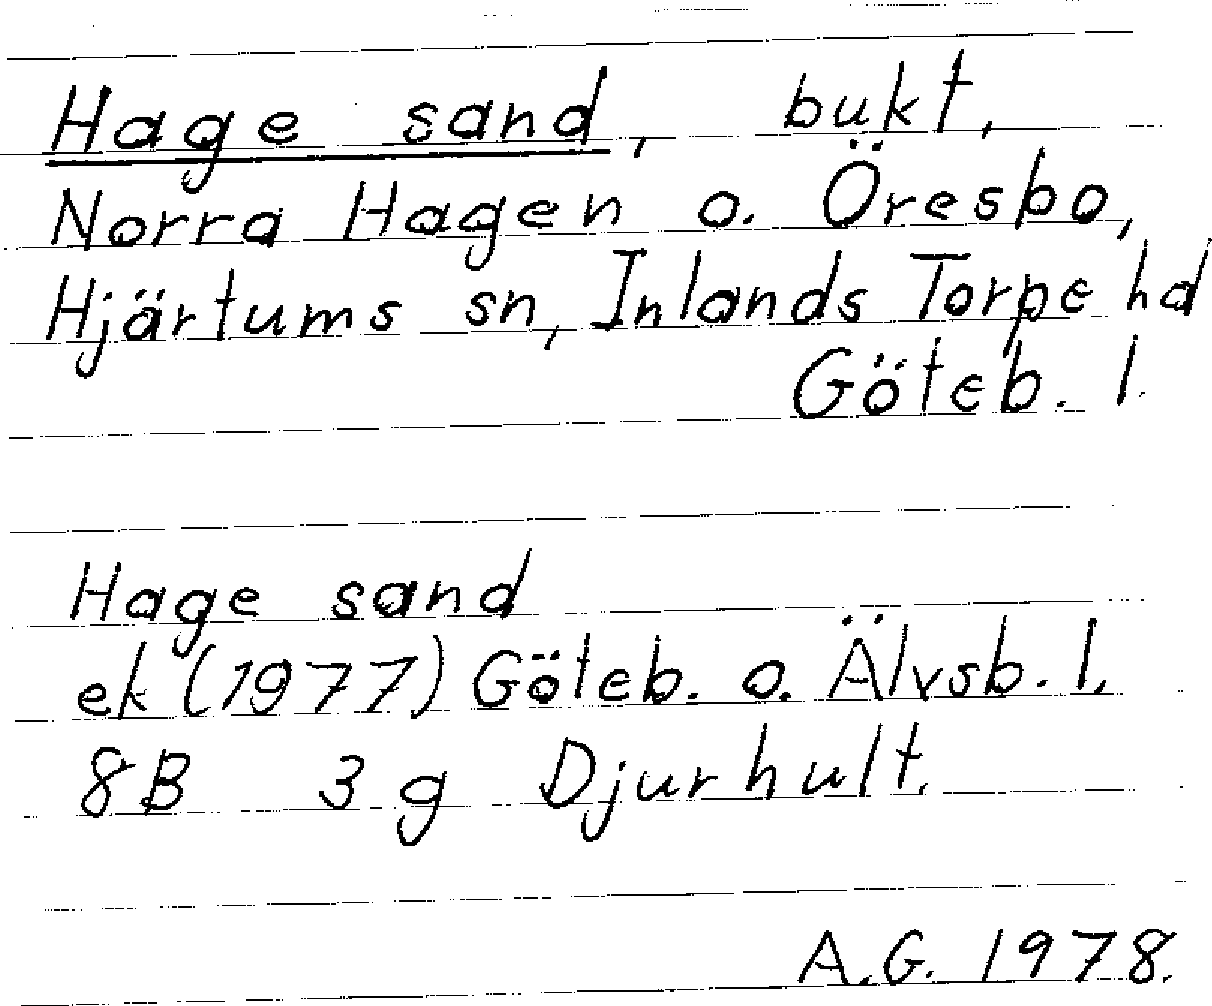 Hage sand, bukt,
Norra Hagen o. Öresbo,
Hjärtums sn, Inlands Torpe hd
Göteb. l.
Hage sand
ek (1977) Göteb. o. Älvsb. l.
8B 3g Djurhult.
A.G. 1978.